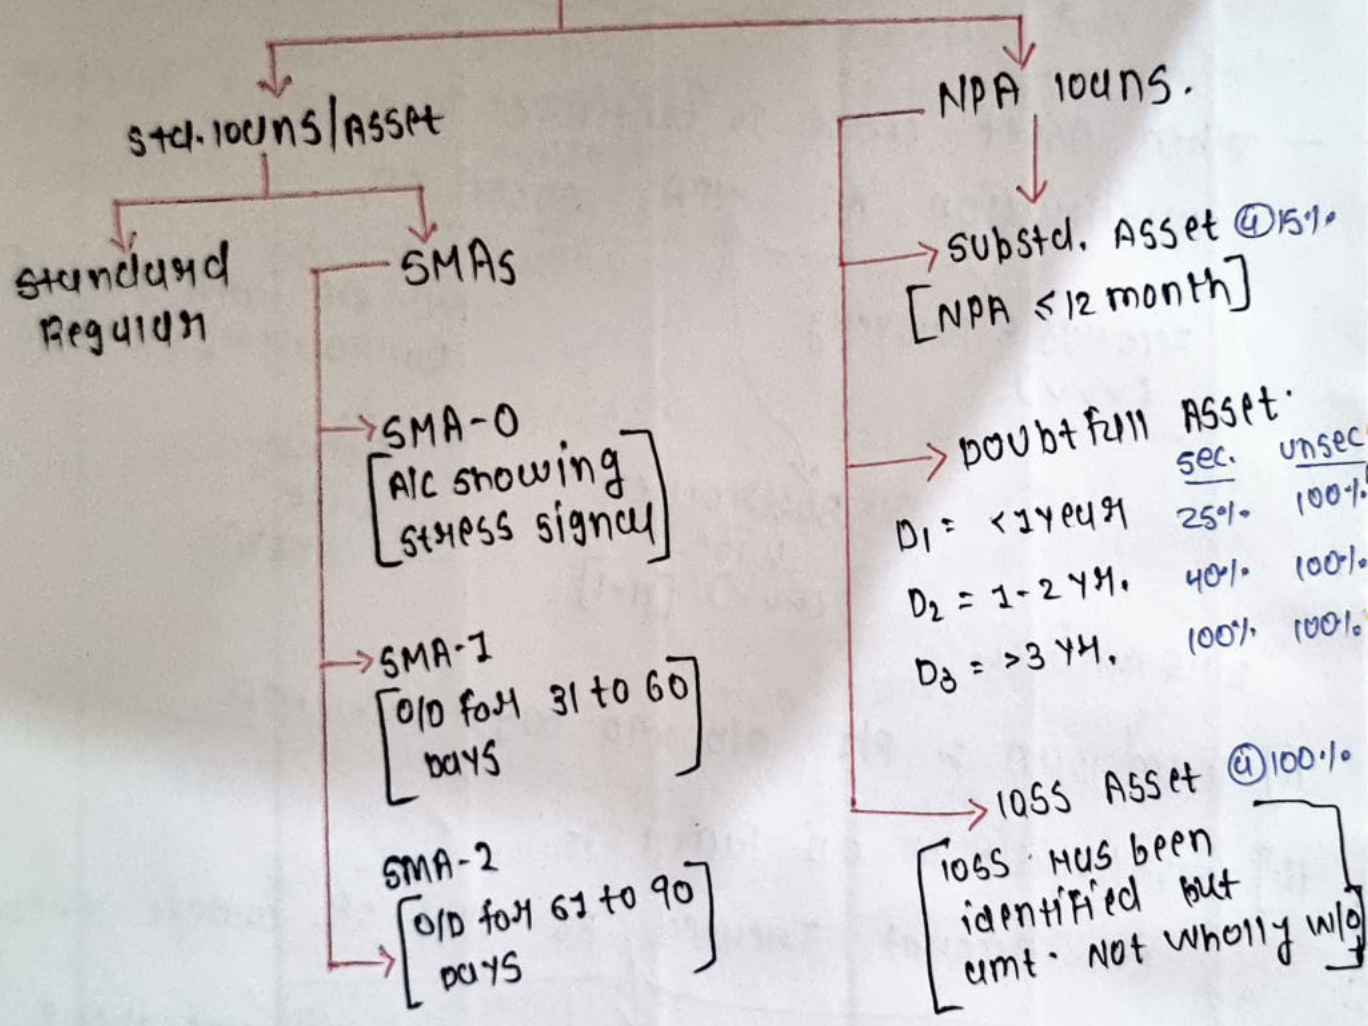 Std. loans/Asset
Standard
Regular
SMAs
SMA-0
[A/C showing
stress signal]
SMA-1
[O/D for 31 to 60
Days]
SMA-2
[O/D for 61 to 90
Days]
NPA loans.
Substd. Asset @15%
[NPA ≤ 12 month]
Doubtfull Asset.
sec. unsec
D1 = <1 year 25% 100%
D2 = 1-2 yr. 40% 100%
D3 = >3 yr. 100% 100%
loss Asset @100%
[loss. Has been
identified but
amt. Not wholly w/o]